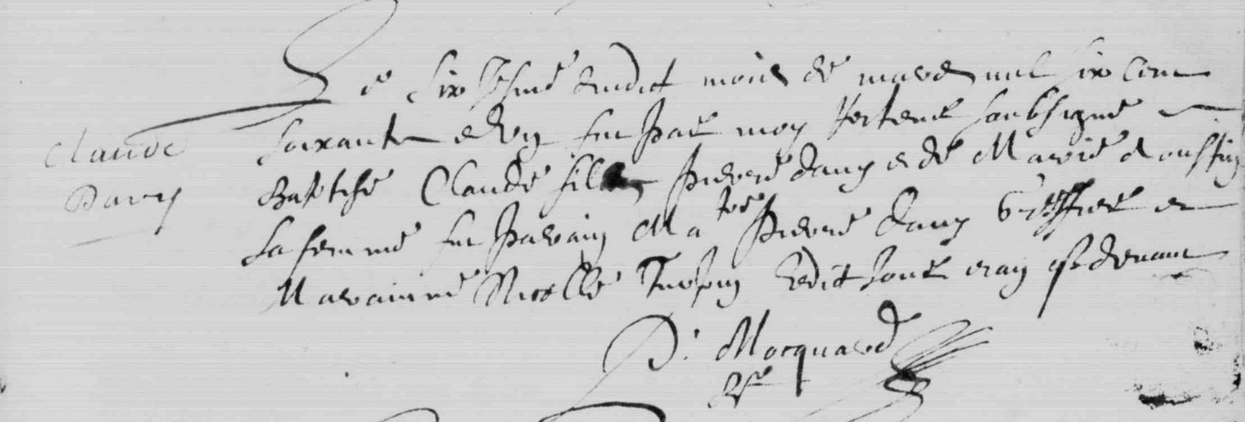 Claude
Davy
Le sixiesme dudict mois de mars mil six cent
soixante et un fut par moy soubsigné
Baptisé Claude fils Pierre davy et de Marie
sa femme fut parain Me Pierre davy Greffier et
Maraine Nicolle Turpin ledit jour et an que devant
D. Mocquard